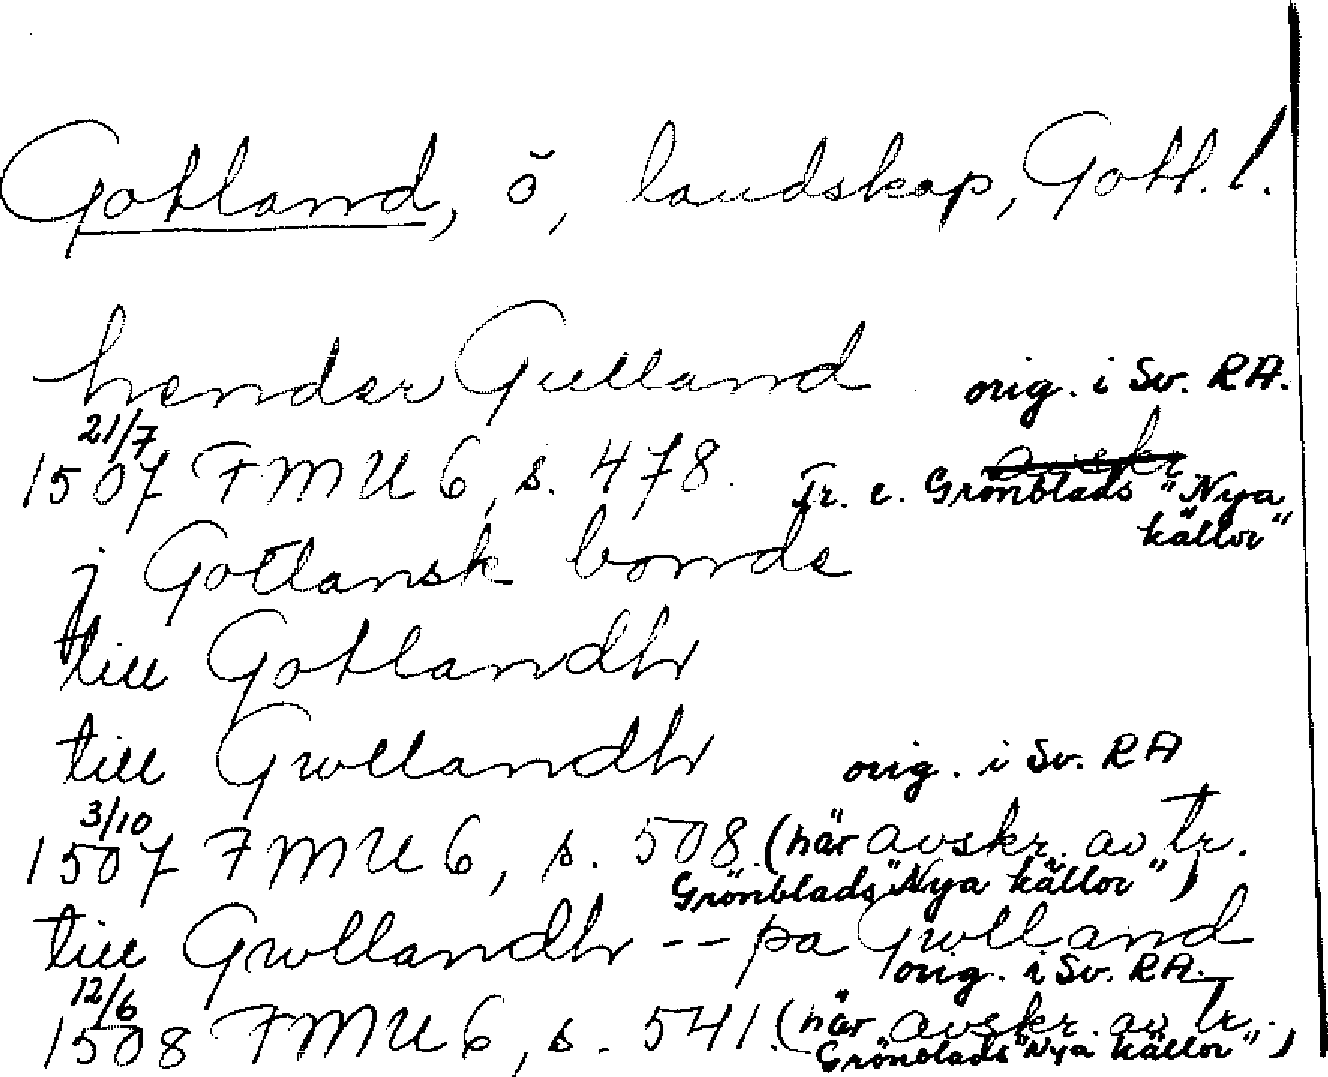 Gotland, ö, landskap, Gotl. l.
hender Gulland orig. i Sv. RA.
21/7
1507 FMU 6, s. 478. Tr. e. Grönblads "Nya källor"
j Gotlansk bonde
till Gotlandh
till Gwllandh orig. i Sv. RA
3/10
1507 FMU 6, s. 508. (här avskr. av tr. Grönblads "Nya källor")
till Gwllandh -- pa Gwlland
12/6 orig. i Sv. RA.
1508 FMU 6, s. 541. (här avskr. av tr. Grönblads "Nya källor")